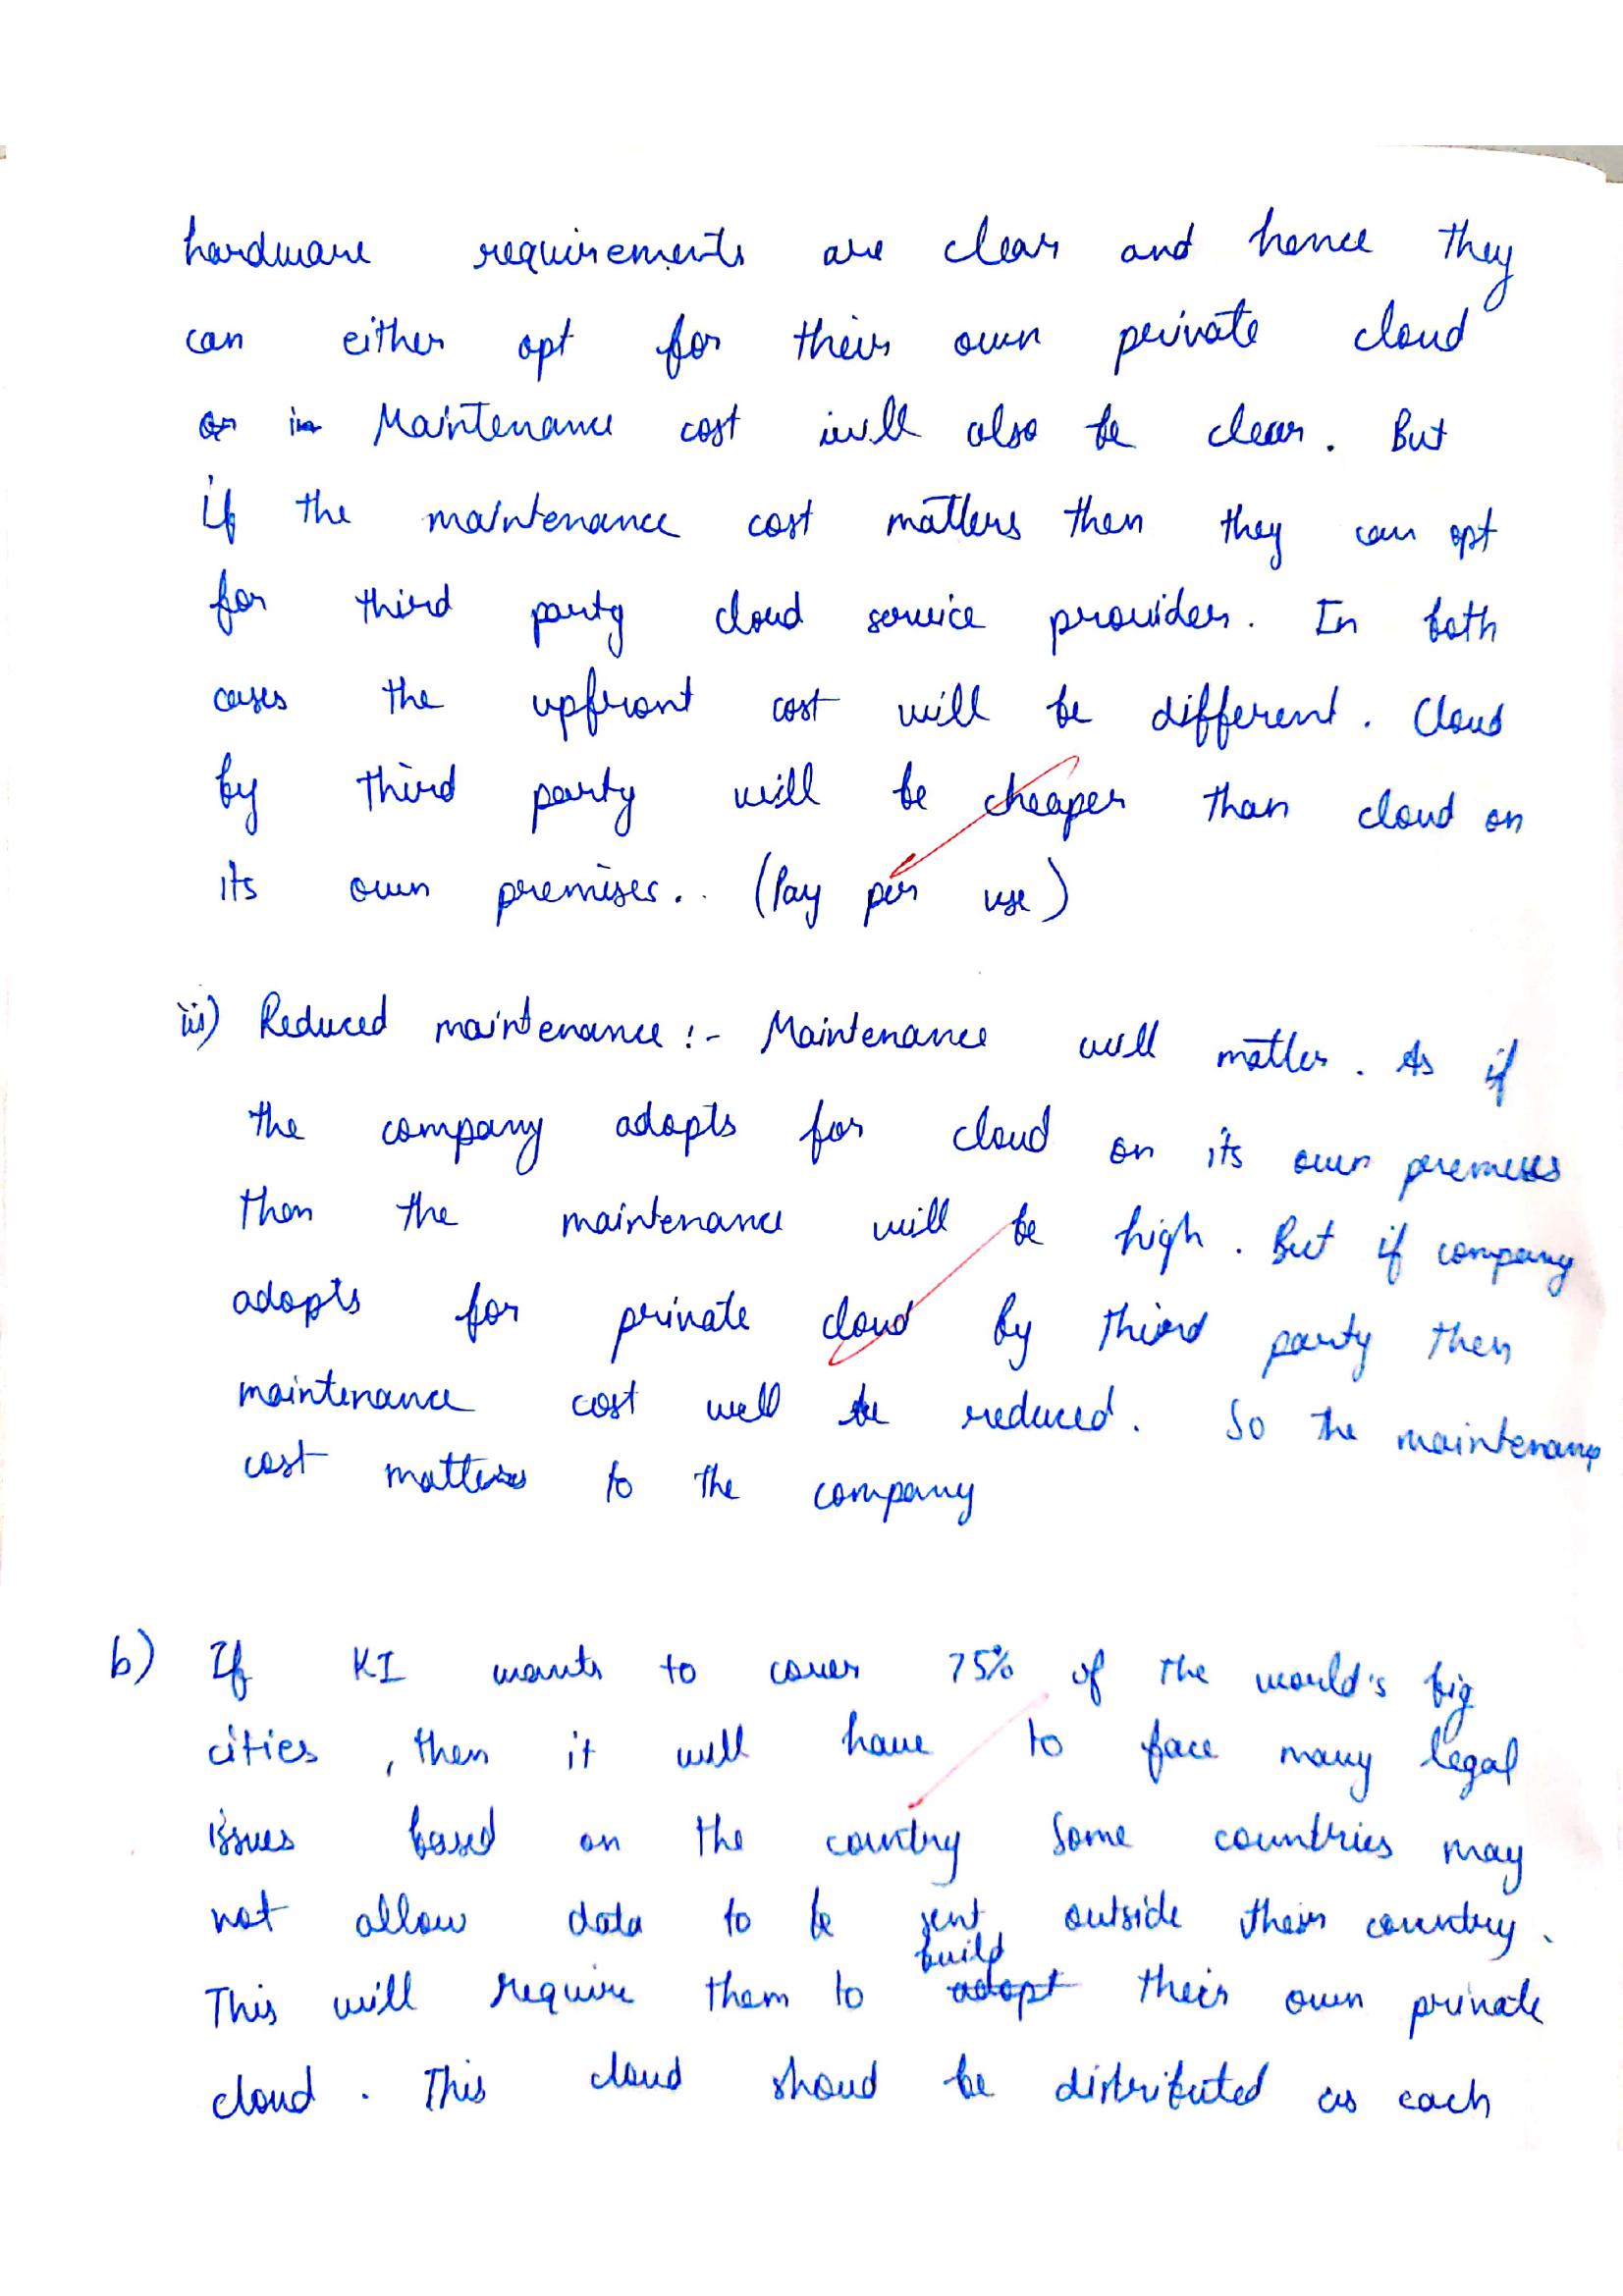 hardware requirements are clear and hence they
can either opt for their own private cloud
or in Maintenance cost will also be clear. But
if the maintenance cost matters then they can opt
for third party cloud service provider. In both
cases the upfront cost will be different. Cloud
by third party will be cheaper than cloud on
its own premises.. (Pay per use)
iii) Reduced maintenance :- Maintenance will matter. As if
the company adopts for cloud on its own premises
then the maintenance will be high. But if company
adopts for private cloud by third party then
maintenance cost will be reduced. So the maintenance
cost matters to the company
b) If KI wants to cover 75% of the world's big
cities, then it will have to face many legal
issues based on the country Some countries may
not allow data to be sent outside their country.
This will require them to adopt build their own private
cloud. This cloud shoud be distributed as each